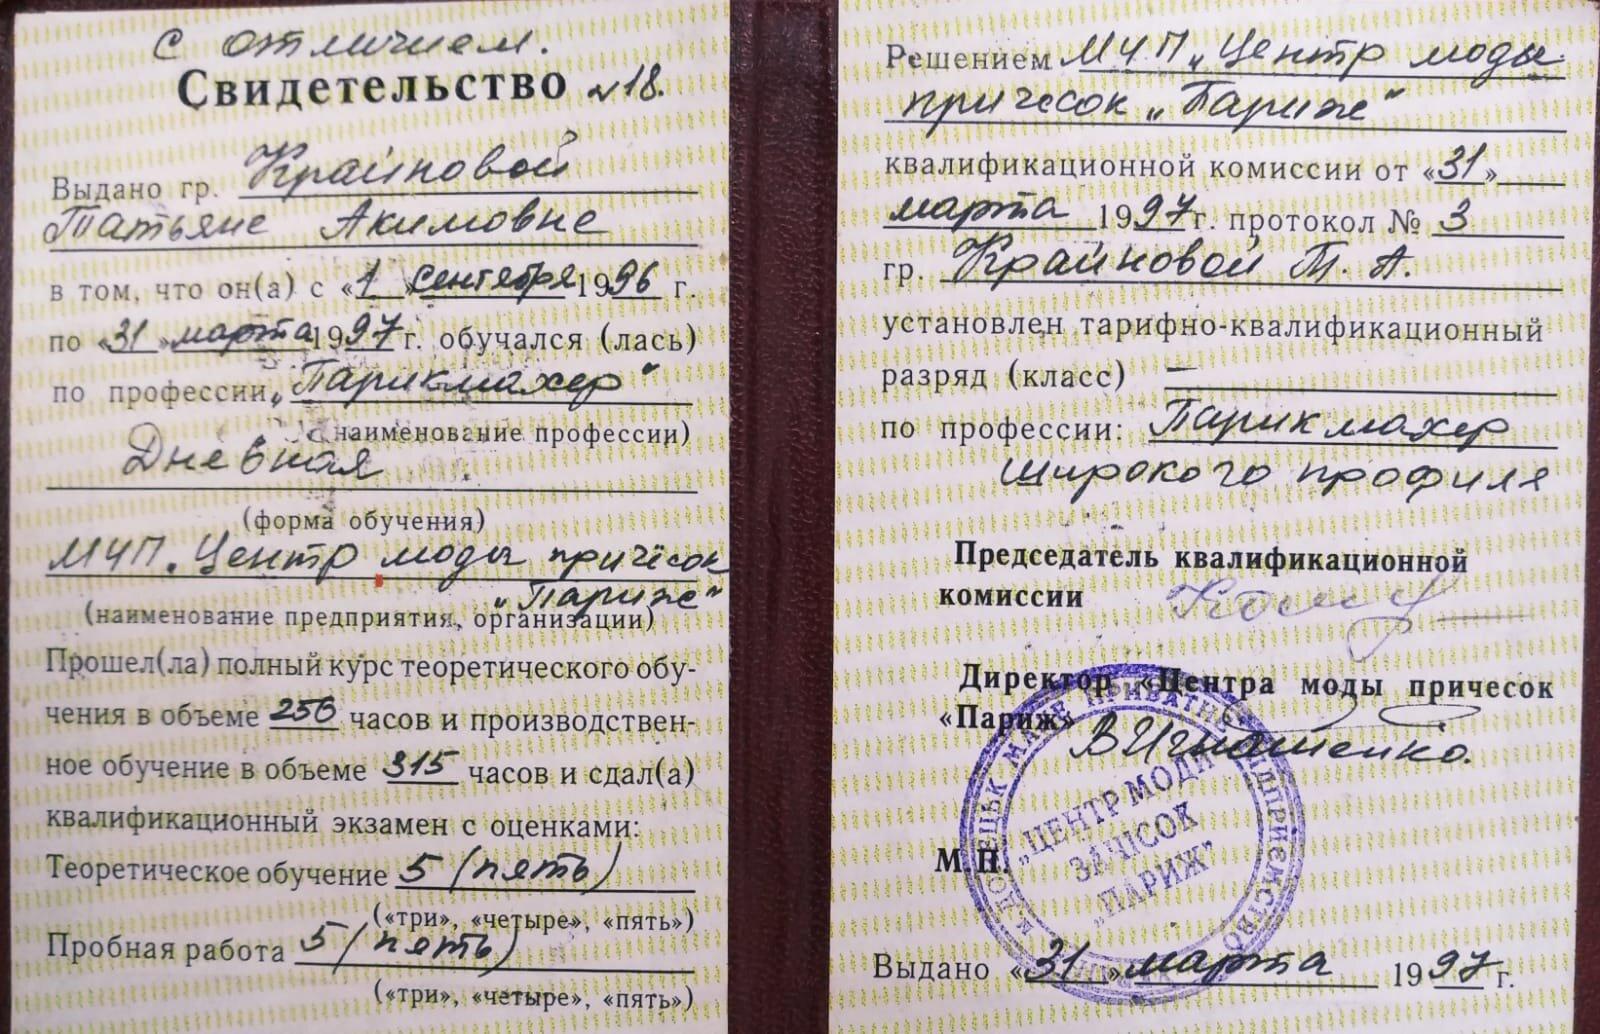 с отличием.
Свидетельство №18.
Выдано гр. Крайновой
Татьяне Акимовне
в том, что он(а) с «1» сентября 1996 г.
по «31» марта 1997 г. обучался (лась)
по профессии „Парикмахер"
(наименование профессии)
Дневная
(форма обучения)
МЧП „Центр моды причёсок
„Париж"
(наименование предприятия, организации)
Прошел(ла) полный курс теоретического обу-
чения в объеме 256 часов и производствен-
ное обучение в объеме 315 часов и сдал(а)
квалификационный экзамен с оценками:
Теоретическое обучение 5 (пять)
(«три», «четыре», «пять»)
Пробная работа 5 (пять)
(«три», «четыре», «пять»)
Решением МЧП „Центр моды
причесок „Париж"
квалификационной комиссии от «31»
марта 1997 г. протокол № 3
гр. Крайновой Т. А.
установлен тарифно-квалификационный
разряд (класс) —
по профессии: Парикмахер
широкого профиля
Председатель квалификационной
комиссии
Директор «Центра моды причесок
«Париж»
В Игнатенко.
М.П.
„ЦЕНТР МОДИ
ЗАЧІСОК
„ПАРИЖ"
МАЛЕ ПРИВАТНЕ ПІДПРИЄМСТВО
Выдано «31» марта 1997 г.